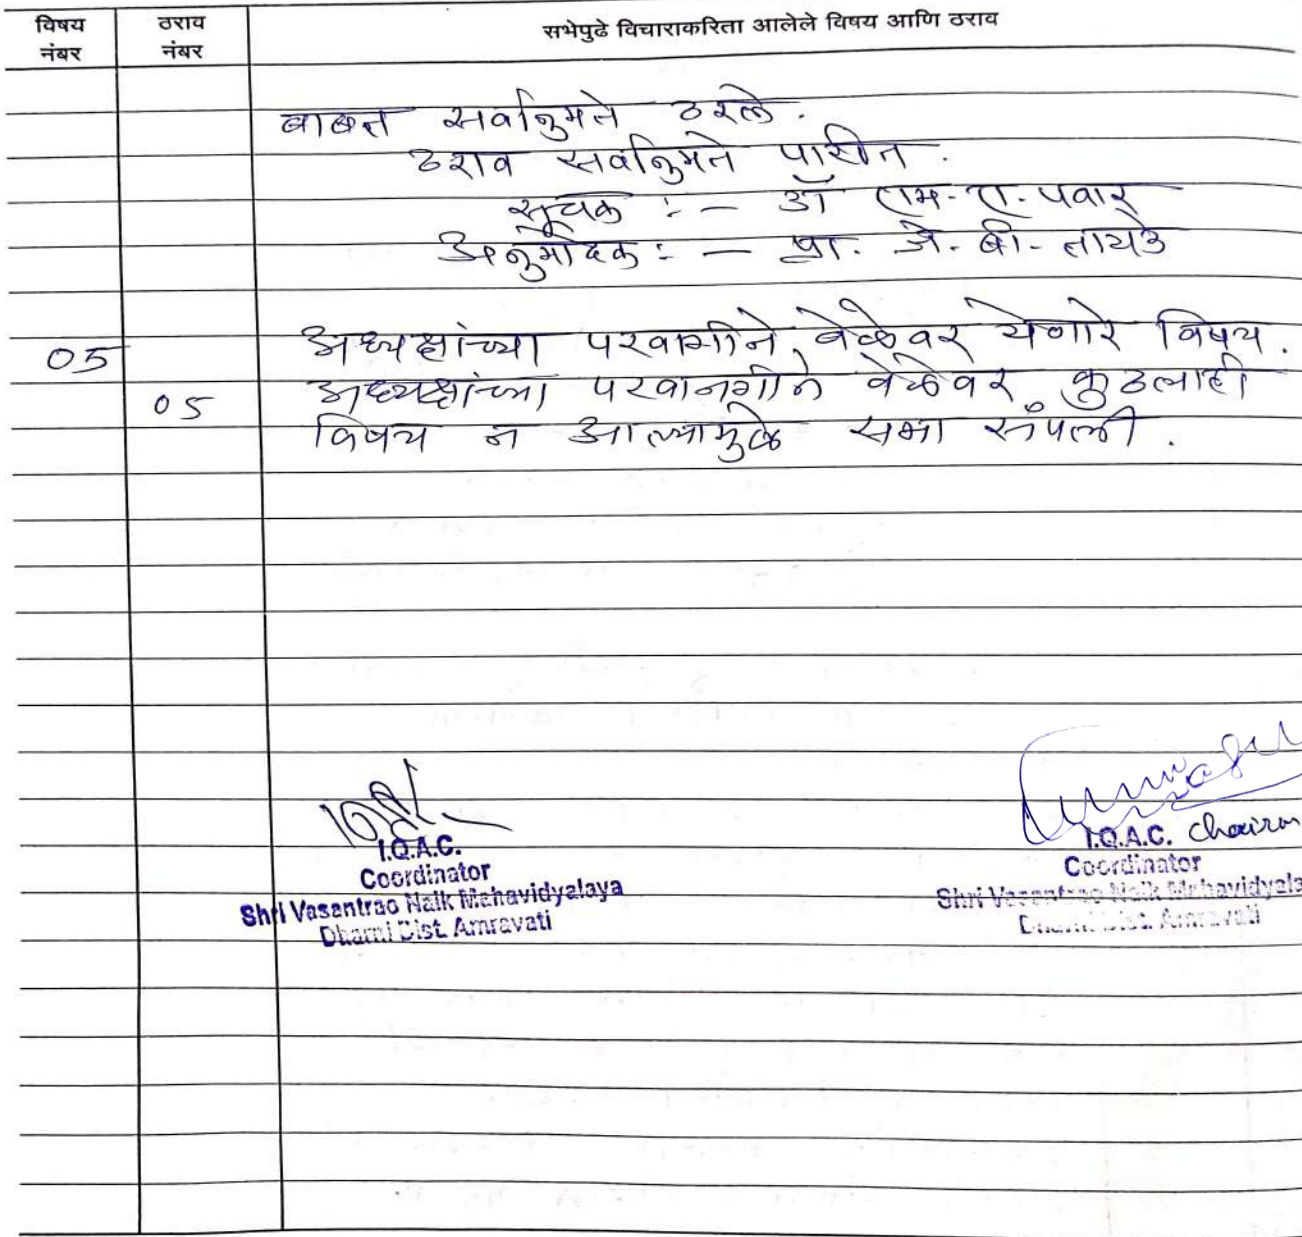 विषय नंबर ठराव नंबर सभेपुढे विचाराकरिता आलेले विषय आणि ठराव
बाबत सर्वानुमते ठरले.
ठराव सर्वानुमते पारीत.
सूचक :- डॉ एम. एा. पवार
अनुमोदक :- प्रा. जे. बी. तायडे
05 अध्यक्षांच्या परवागीने वेळेवर येणारे विषय.
05 अध्यक्षांच्या परवानगीने वेळेवर कुठलाही
विषय न आल्यामुळे सभा संपली.
I.Q.A.C.
Coordinator
Shri Vasantrao Naik Mahavidyalaya
Dharni Dist. Amravati
I.Q.A.C. Chairman
Coordinator
Shri Vasantrao Naik Mahavidyala
Dharni Dist. Amravati